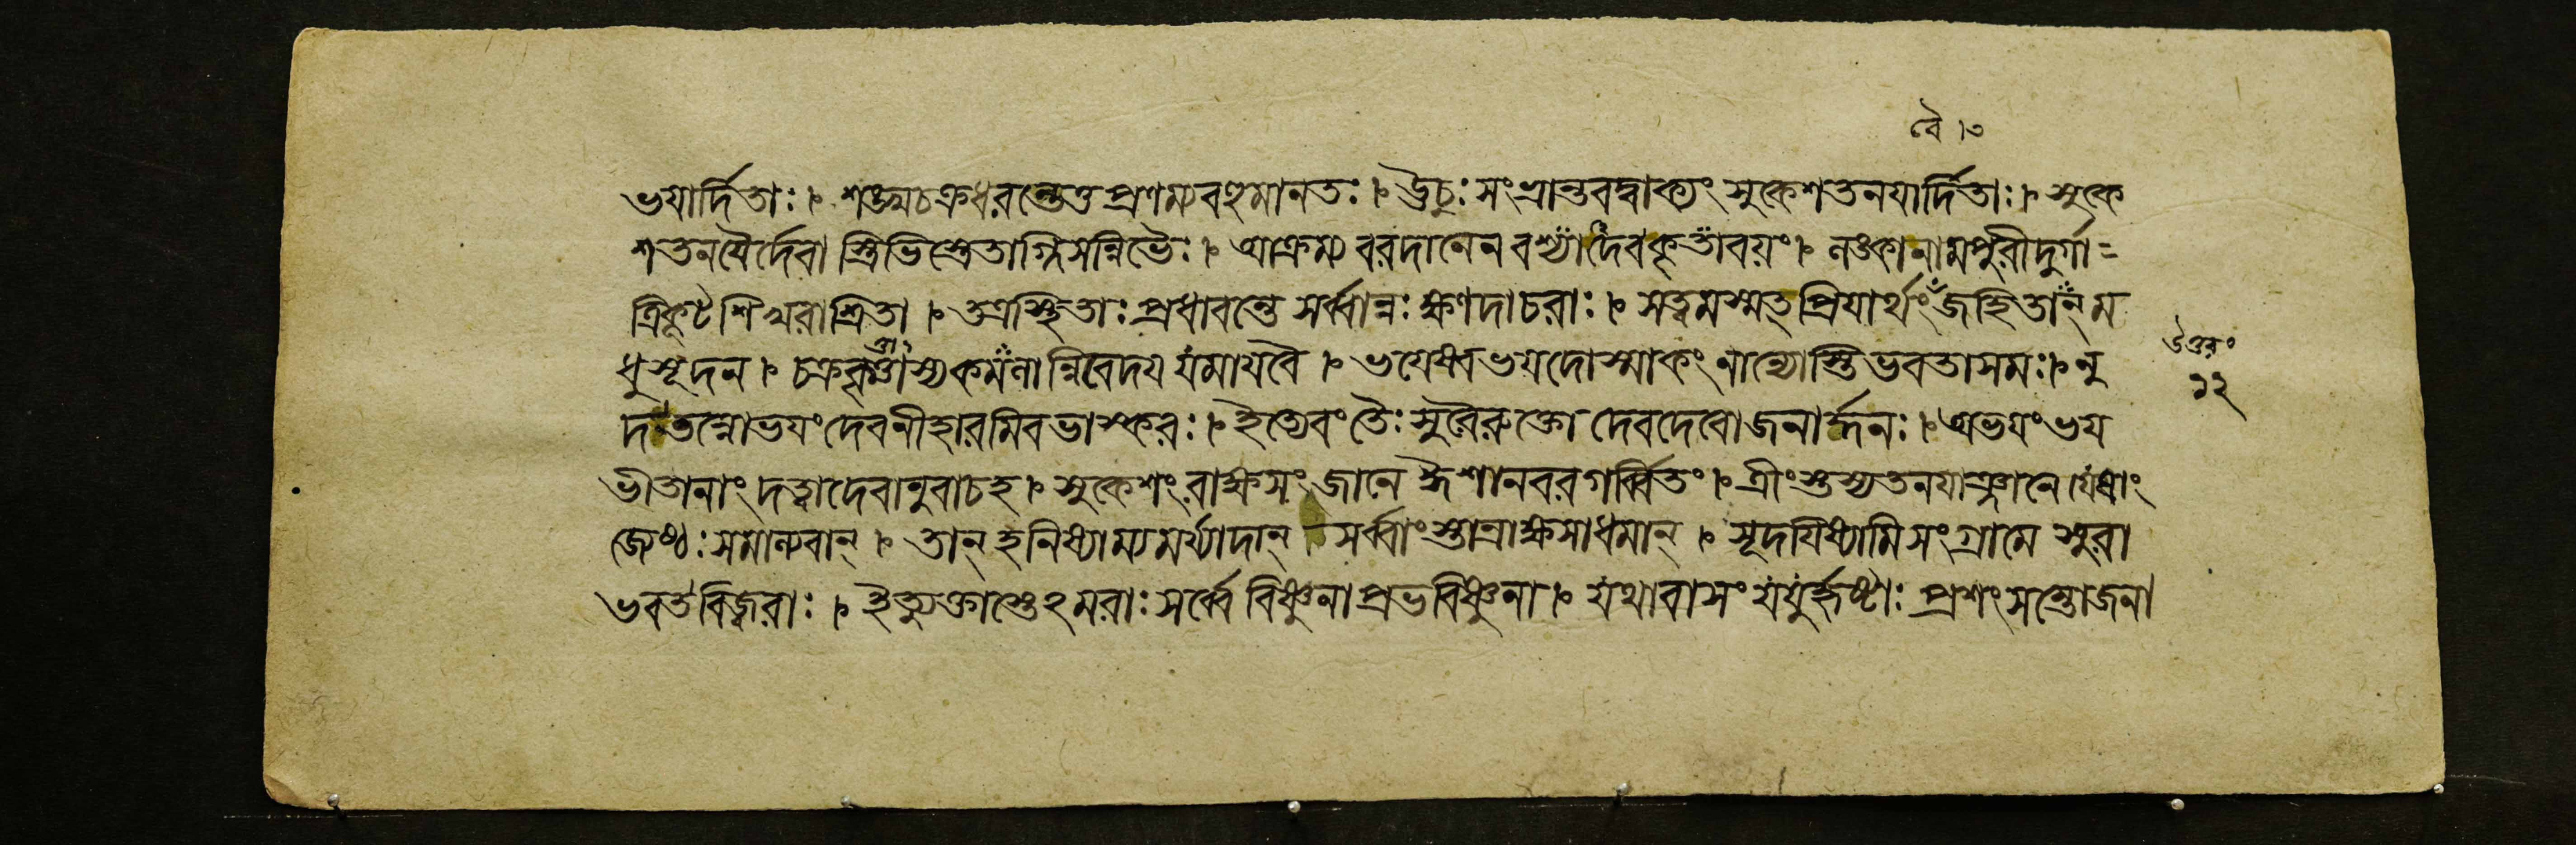 বৈ ৷৩
ভযার্দিতাঃ ৷ শঙ্খচক্রধরন্তেতু প্রণম্যবহুমানতঃ ৷ ঊচুঃ সংভ্রান্তবদ্বাক্যং সুকেশতনযার্দিতাঃ ৷ সুকে
শতনযৈর্দেবা স্ত্রিভিস্ত্রেতাগ্নিসন্নিভৈঃ ৷ আক্রম্য বরদানেন কৃতাবযং ৷ লঙ্কানামপুরীদুর্গা
ত্রিকূট শিখরাশ্রিতা ৷ তত্রস্থিতাঃ প্রধাবন্তে সর্ব্বান্নঃ ক্ষণদাচরাঃ ৷ সত্বমস্মত্ প্রিযার্থং জহিতান্ ম
ধুসূদন ৷ নিবেদয যমাযবৈ ৷ ভযেষ্বভযদোস্মাকং নান্যোস্তি ভবতাসমঃ ৷ নু
দত্বন্নোভযং দেবনীহারমিবভাস্করঃ ৷ ইত্যেবং তৈঃ সুরৈরুক্তো দেবদেবোজনার্দ্দনঃ ৷ অভযং ভয
ভীতানাং দত্ত্বাদেবানুবাচহ ৷ সুকেশং রাক্ষসং জানে ঈশানবরগর্ব্বিতং ৷ ত্রীংস্তস্যতনযাঞ্জানে যেষাং
জ্যেষ্ঠঃ সমাল্যবান্ ৷ তান্ হনিষ্যাম্যমর্য্যাদান্ ৷ সর্ব্বাংস্তান্রাক্ষসাধমান্ ৷ সূদযিষ্যামি সংগ্রামে সুরা
ভবত বিজ্বরাঃ ৷ ইত্যুক্তাস্তেঽমরাঃ সর্ব্বে বিষ্ণুনা প্রভবিষ্ণুনা ৷ যথাবাসং যযুর্হৃষ্টাঃ প্রশংসন্তোজনা
উত্তরং
১২